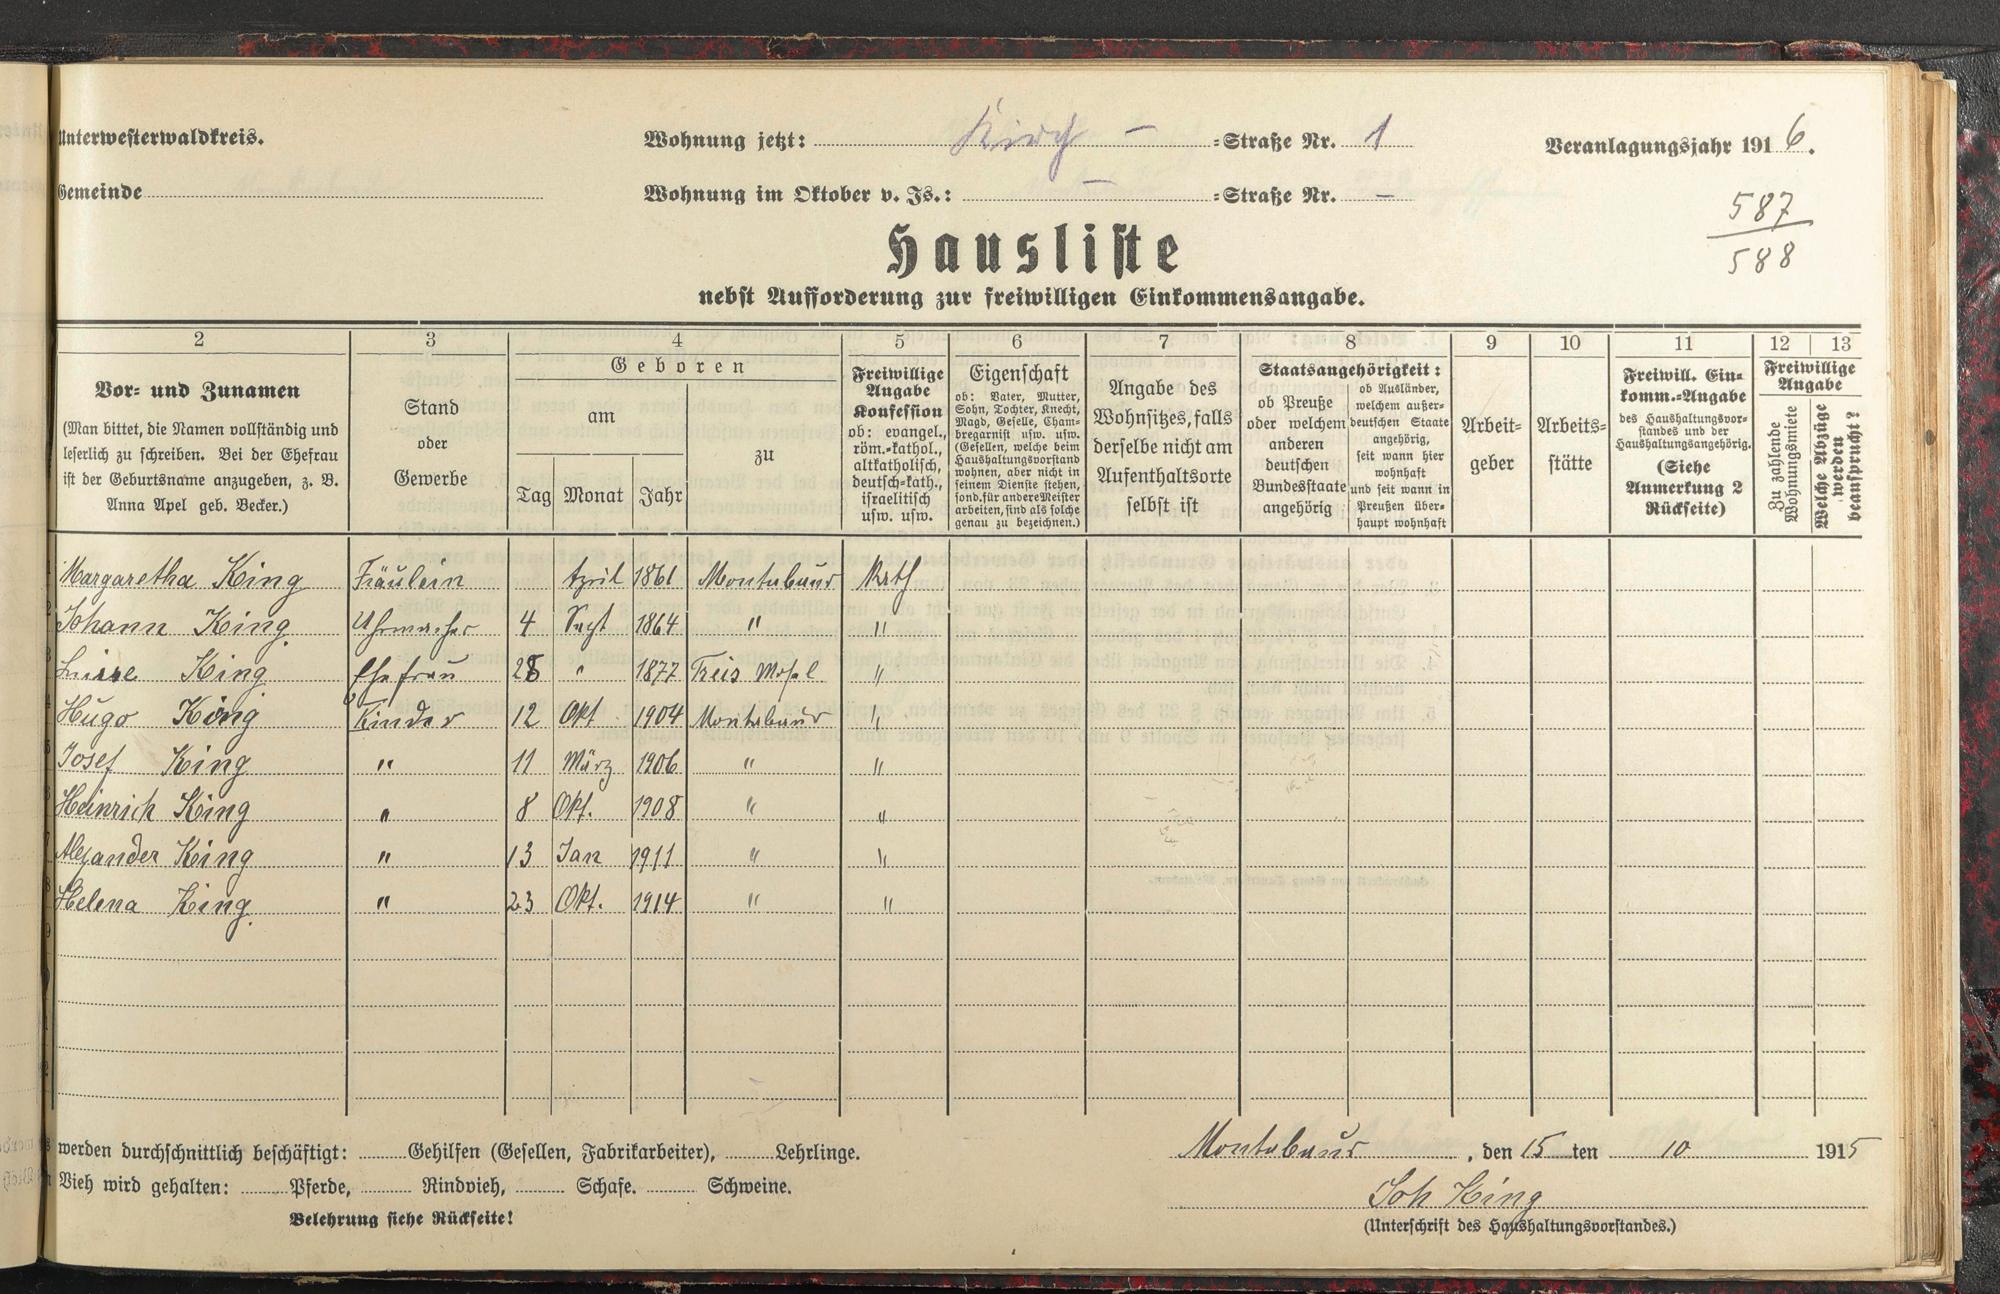 Unterwesterwaldkreis.
Wohnung jetzt: Kirch - =Straße Nr. 1
Veranlagungsjahr 1916.
Gemeinde
Wohnung im Oktober v. Js.: — =Straße Nr. —
587
588
Hausliste
nebst Aufforderung zur freiwilligen Einkommensangabe.
2 3 4 5 6 7 8 9 10 11 12 13
Vor- und Zunamen
(Man bittet, die Namen vollständig und
leserlich zu schreiben. Bei der Ehefrau
ist der Geburtsname anzugeben, z. B.
Anna Apel geb. Becker.)
Stand
oder
Gewerbe
Geboren
am
Tag Monat Jahr
zu
Freiwillige
Angabe
Konfession
ob: evangel.,
röm.-kathol.,
altkatholisch,
deutsch-kath.,
israelitisch
usw. usw.
Eigenschaft
ob: Vater, Mutter,
Sohn, Tochter, Knecht,
Magd, Geselle, Cham-
bregarnist usw. usw.
(Gesellen, welche beim
Haushaltungsvorstand
wohnen, aber nicht in
seinem Dienste stehen,
sond. für andere Meister
arbeiten, sind als solche
genau zu bezeichnen.)
Angabe des
Wohnsitzes, falls
derselbe nicht am
Aufenthaltsorte
selbst ist
Staatsangehörigkeit:
ob Preuße
oder welchem
anderen
deutschen
Bundesstaate
angehörig
ob Ausländer,
welchem außer-
deutschen Staate
angehörig,
seit wann hier
wohnhaft
und seit wann in
Preußen über-
haupt wohnhaft
Arbeit-
geber
Arbeits-
stätte
Freiwill. Ein-
komm.-Angabe
des Haushaltungsvor-
standes und der
Haushaltungsangehörig.
(Siehe
Anmerkung 2
Rückseite)
Freiwillige
Angabe
Zu zahlende
Wohnungsmiete
Welche Abzüge
werden
beansprucht?
Margaretha King Fräulein April 1861 Montabaur Kath
2 Johann King Uhrmacher 4 Sept 1864 " "
3 Luise King Ehefrau 28 " 1877 Treis Mosel "
4 Hugo King Kinder 12 Okt 1904 Montabaur "
5 Josef King " 11 März 1906 " "
6 Heinrich King " 8 Okt. 1908 " "
7 Alexander King " 13 Jan 1911 " "
8 Helena King " 23 Okt. 1914 " "
9
werden durchschnittlich beschäftigt: Gehilfen (Gesellen, Fabrikarbeiter), Lehrlinge.
Vieh wird gehalten: Pferde, Rindvieh, Schafe. Schweine.
Belehrung siehe Rückseite!
Montabaur, den 15 ten 10 1915
Joh King
(Unterschrift des Haushaltungsvorstandes.)